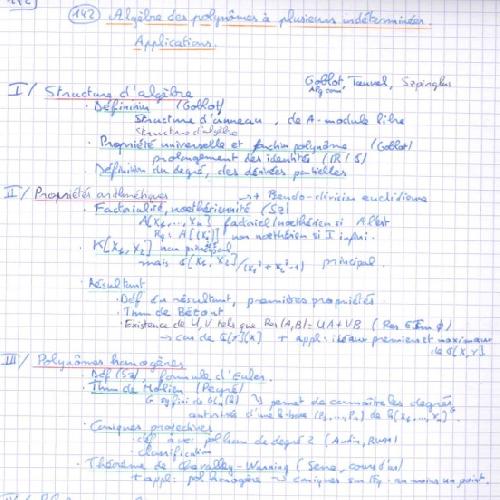 142 Algèbre des polynômes à plusieurs indéterminées.
Applications.
Goblot, Tauvel, Szpirglas
Alg com
I/ Structure d'algèbre
• Définition (Goblot)
Structure d'anneau, de A-module libre
Structure d'algèbre
• Propriété universelle et fonction polynôme (Goblot)
prolongement des identités (R/S)
• Définition du degré, des dérivées partielles
II/ Propriétés arithmétiques → Pseudo-division euclidienne
• Factorialité, noethérianité (Sz)
A[X1,...,Xn] factoriel/noethérien si A l'est
non noethérien si I infini.
• K[X1,X2] non principal
mais [X1,X2]/(X1²+X2²-1) principal.
• Résultant
• Déf du résultant, premières propriétés
• Thm de Bézout
• Existence de U,V tels que Res(A,B)=UA+VB
→ cas de + appl: idéaux premiers et maximaux
de [X,Y]
III/ Polynômes homogènes
• Déf (Sz), formule d'Euler.
• Thm de Molien (Peyré)
permet de connaître les degrés
d'une k-base (P1,...,Pn) de
• Coniques projectives
• déf avec pol hom de degré 2
• classification
• Théorème de Chevalley-Warning (Serre, cours d'ar)
+ appl: pol homogène → coniques sur Fq au moins un point.